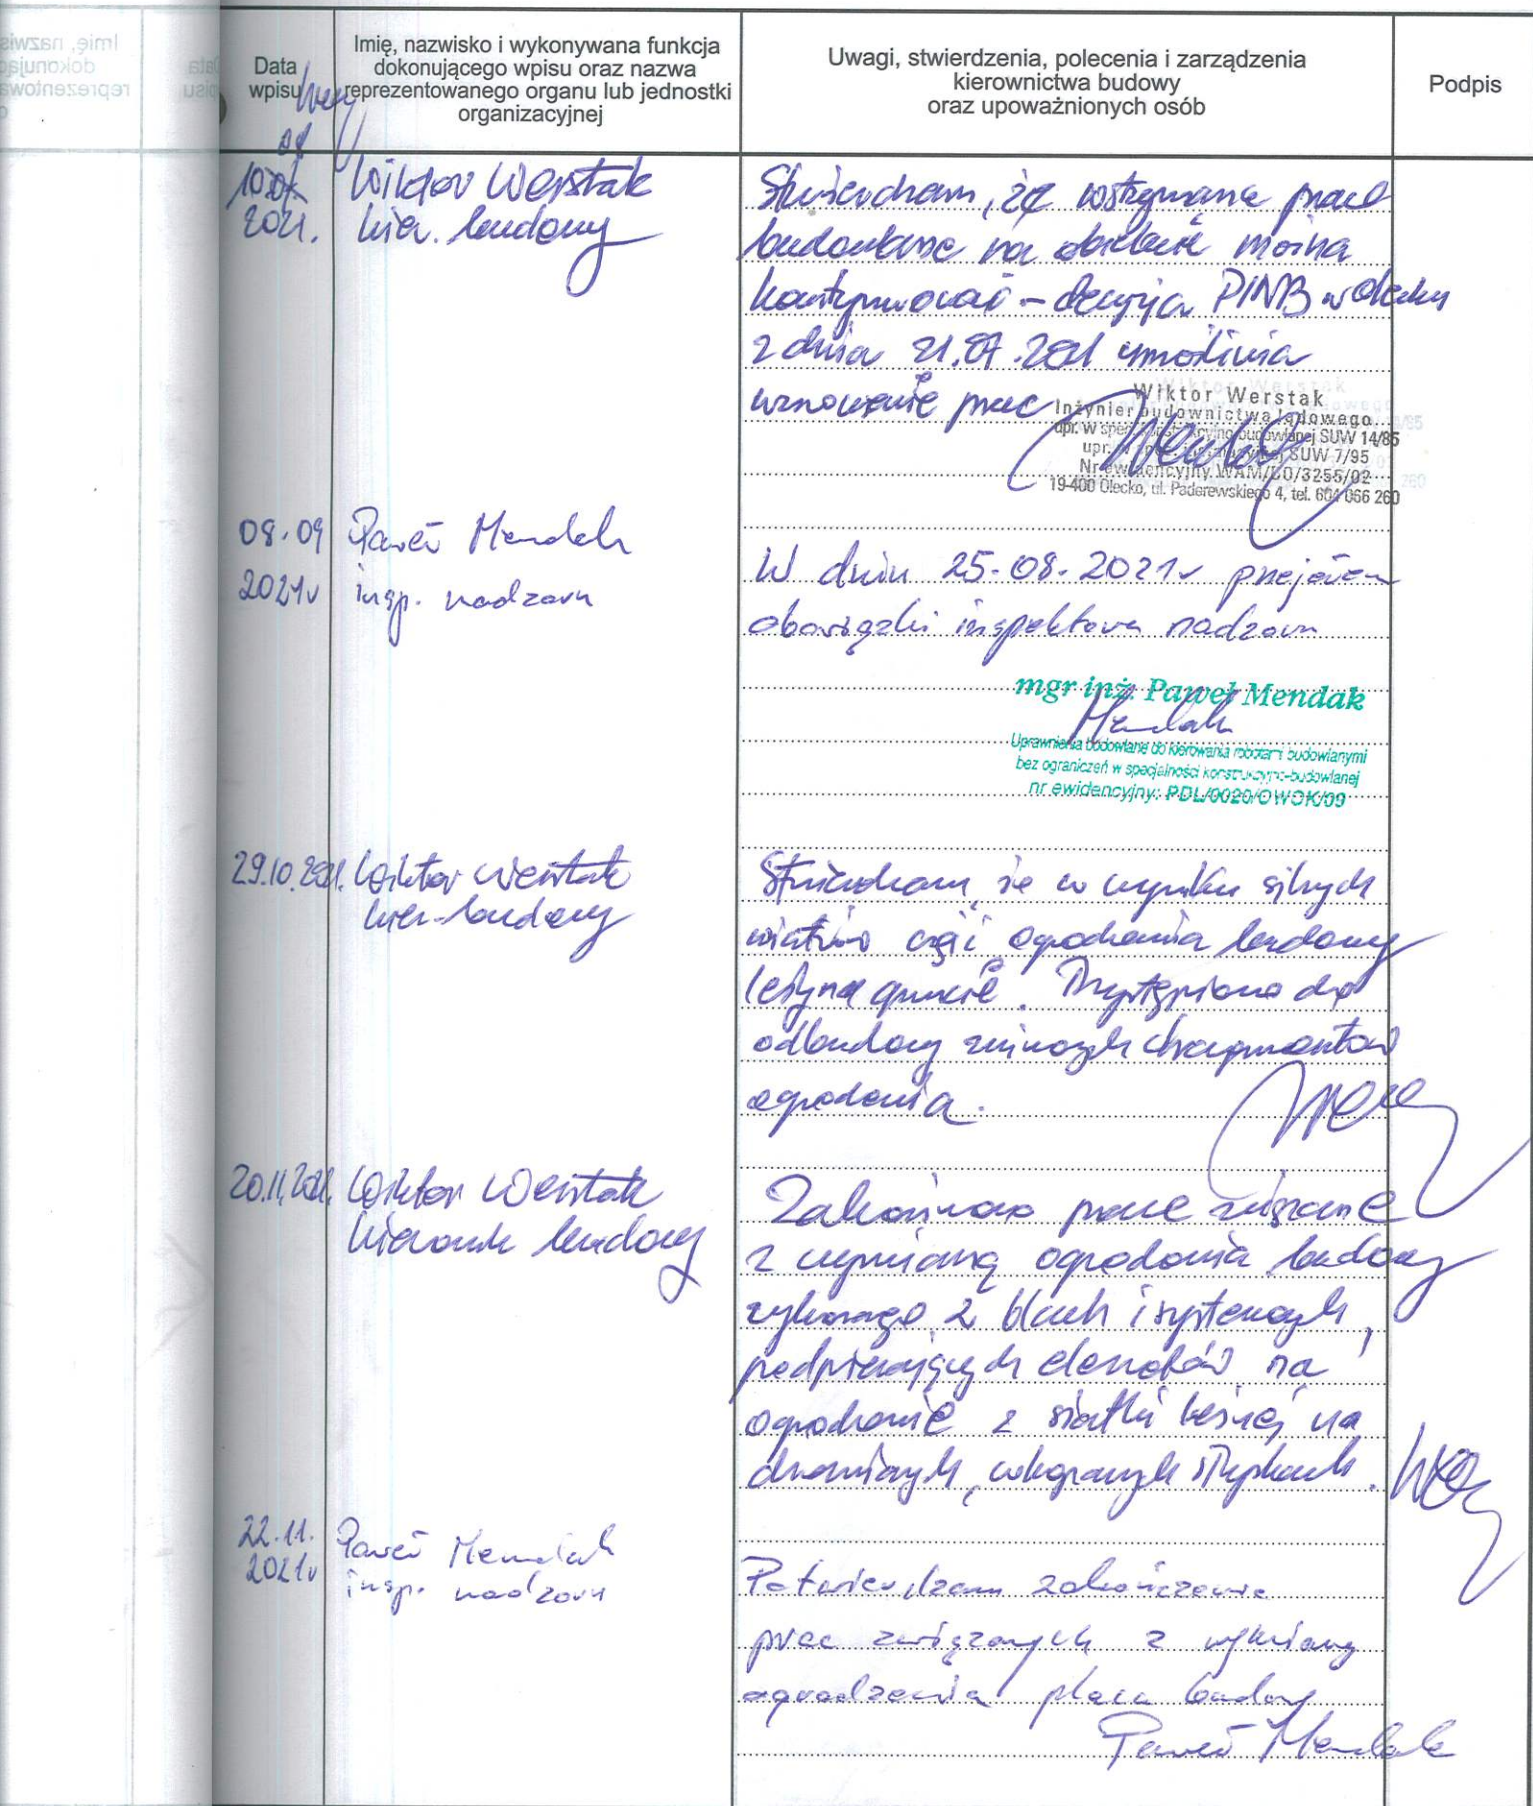 Data
wpisu
Imię, nazwisko i wykonywana funkcja
dokonującego wpisu oraz nazwa
reprezentowanego organu lub jednostki
organizacyjnej
Uwagi, stwierdzenia, polecenia i zarządzenia
kierownictwa budowy
oraz upoważnionych osób
Podpis
2021.
Wiktor Werstak
kier. budowy
Stwierdzam, że wstrzymane prace
budowlane na obiekcie można
kontynuować – decyzja PINB w Olecku
z dnia 21.07.2021 umożliwia
wznowienie prac
Wiktor Werstak
Inżynier budownictwa lądowego
upr. w SUW 14/85
upr. SUW 7/95
Nr ewidencyjny WAM/BO/3255/02
19-400 Olecko, ul. Paderewskiego 4, tel. 604 066 260
08.09
2021r
Paweł Mendak
insp. nadzoru
W dniu 25.08.2021r przejąłem
obowiązki inspektora nadzoru
mgr inż. Paweł Mendak
Mendak
Uprawnienia budowlane do kierowania robotami budowlanymi
bez ograniczeń w specjalności konstrukcyjno-budowlanej
nr ewidencyjny: PDL/0020/OWOK/09
29.10.2021.
Wiktor Werstak
kier. budowy
Stwierdzam, że w wyniku silnych
wiatrów część ogrodzenia budowy
leży na gruncie. Przystąpiono do
odbudowy fragmentów
ogrodzenia.
20.11.2021.
Wiktor Werstak
kierownik budowy
Zakończono prace związane
z wymianą ogrodzenia budowy
z blach i systemowych,
podpierających elementów na
ogrodzenie z siatki leśnej na
drewnianych, wkopanych słupkach.
22.11.
2021r
Paweł Mendak
insp. nadzoru
Potwierdzam zakończenie
prac związanych z wymianą
ogrodzenia placu budowy
Paweł Mendak